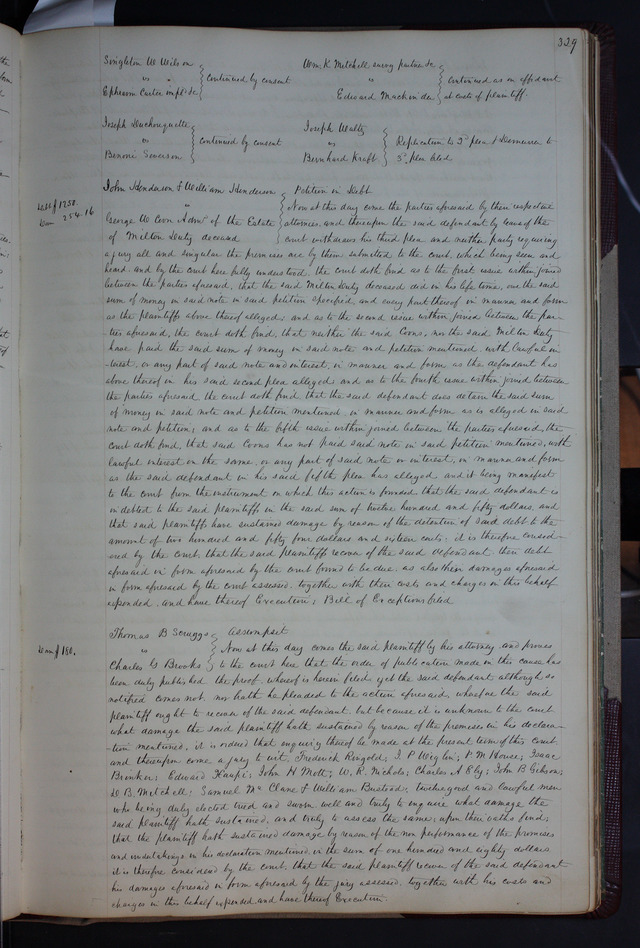 339
Singleton W Wilson
vs
Ephraim Carter impl'd &c
continued by consent
Wm. K. Mitchell surviv partner &c
vs
Edward Mackinder
continued as on affidavit
at costs of plaintiff.
Joseph Duchouquette
vs
Benoni
continued by consent
Joseph Waltz
vs
Bernhard Kraft
Replication to 2d plea & Demurrer to
3d plea filed
Debt $1250.
Dam 254.16
John Henderson & William Henderson
vs
George W Coon Admr of the Estate
of Milton Duty deceased
Petition in Debt
Now at this day come the parties aforesaid by their respective
attornies, and thereupon the said defendant by leave of the
court withdraws his third plea, and neither party requiring
a jury all and singular the premises are by them submitted to the court, which being seen and
heard, and by the court here fully understood, the court doth find as to the first issue within joined
between the parties aforesaid, that the said Milton Duty deceased did in his life time, owe the said
sum of money in said note in said petition specified, and every part thereof in manner and form
as the plaintiffs above thereof alleged; and as to the second issue within joined, between the par-
ties aforesaid, the court doth find, that neither the said Coons, nor the said Milton Duty
have paid the said sum of money in said note and petition mentioned, with lawful in-
terest, or any part of said note and interest, in manner and form as the defendant has
above thereof in his said second plea alleged; and as to the fourth issue within joined between
the parties aforesaid, the court doth find that the said defendant does detain the said sum
of money in said note and petition mentioned in manner and form as is alleged in said
note and petition; and as to the fifth issue within joined between the parties aforesaid, the
court doth find, that said Coons has not paid said note in said petition mentioned, with
lawful interest on the same, or any part of said note or interest, in manner and form
as the said defendant in his said fifth plea has alleged, and it being manifest
to the court from the instrument on which this action is founded, that the said defendant is
indebted to the said plaintiffs in the said sum of twelve hundred and fifty dollars, and
that said plaintiffs have sustained damage by reason of the detention of said debt to the
amount of two hundred and fifty four dollars and sixteen cents: it is therefore consid-
ered by the court, that the said plaintiffs recover of the said defendant, their debt
aforesaid in form aforesaid by the court found to be due, as also their damages aforesaid
in form aforesaid by the court assessed, together with their costs and charges in this behalf
expended, and have thereof Execution; Bill of Exceptions filed
Dam $180.
Thomas B Scruggs
vs
Charles G Brooks
Assumpsit
Now at this day comes the said plaintiff by his attorney and proves
to the court here that the order of publication made in this cause has
been duly published, the proof whereof is herein filed, yet the said defendant although so
notified comes not, nor hath he pleaded to the action aforesaid, wherefore the said
plaintiff ought to recover of the said defendant, but because it is unknown to the court
what damage the said plaintiff hath sustained by reason of the premises in his declara-
tion mentioned, it is ordered that enquiry thereof be made at the present term of this court
and thereupon come a jury to wit, Frederick Ringold; J. P. Wizlin; P M House; Isaac
Brinker; Edward Haupt; John H Mott; W. R. Nichols; Charles A Ely; John B Gibson;
D B Mitchell; Samuel Mc Clane & William Bustead; twelve good and lawful men
who being duly elected tried and sworn well and truly to enquire what damage the
said plaintiff hath sustained, and truly to assess the same; upon their oaths find;
that the plaintiff hath sustained damage by reason of the non performance of the promises
and undertakings in his declaration mentioned in the sum of one hundred and eighty dollars
it is therefore considered by the court, that the said plaintiff recover of the said defendant
his damages aforesaid in form aforesaid by the jury assessed, together with his costs and
charges in this behalf expended and have thereof Execution.